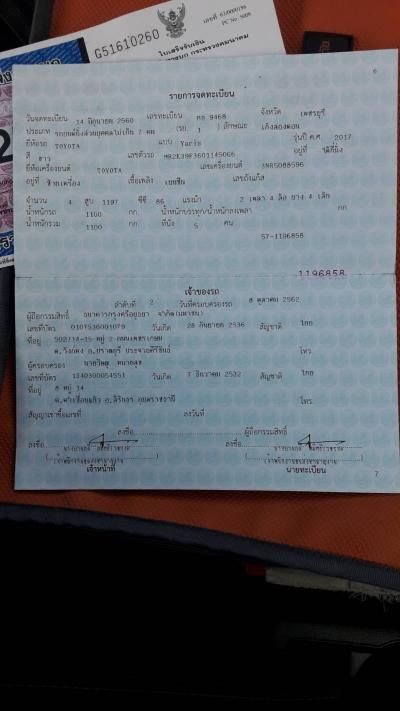 เลขที่ 610000196
PC No. 5009
G51610260
ใบเสร็จรับเงิน
กระทรวงคมนาคม
2
6
รายการจดทะเบียน
วันจดทะเบียน 14 มิถุนายน 2560 เลขทะเบียน 9468 จังหวัด เพชรบุรี
ประเภท รถยนต์นั่งส่วนบุคคลไม่เกิน 7 คน (รย. 1 ) ลักษณะ เก๋งสองตอน
ยี่ห้อรถ TOYOTA แบบ Yaris รุ่นปี ค.ศ. 2017
สี ขาว เลขตัวรถ MR2K39F3601145066 อยู่ที่
ยี่ห้อเครื่องยนต์ TOYOTA เลขเครื่องยนต์ 3NR5088596
อยู่ที่ ซ้ายเครื่อง เชื้อเพลิง เบนซิน เลขถังแก๊ส
จำนวน 4 สูบ 1197 ซีซี 86 แรงม้า 2 เพลา 4 ล้อ ยาง 4 เส้น
น้ำหนักรถ 1100 กก. น้ำหนักบรรทุก/น้ำหนักลงเพลา กก.
น้ำหนักรวม 1100 กก. ที่นั่ง 5 คน
57-1196858
1196858
เจ้าของรถ
ลำดับที่ 2 วันที่ครอบครองรถ 8 ตุลาคม 2562
ผู้ถือกรรมสิทธิ์ ธนาคารกรุงศรีอยุธยา จำกัด(มหาชน)
เลขที่บัตร 0107536001079 วันเกิด 28 กันยายน 2536 สัญชาติ ไทย
ที่อยู่ 502/14-15 หมู่ 2 ถนนเพชรเกษม
ต.วังก์พง อ.ปราณบุรี ประจวบคีรีขันธ์ โทร.
ผู้ครอบครอง
เลขที่บัตร 1340300054551 วันเกิด 7 ธันวาคม 2532 สัญชาติ ไทย
ที่อยู่ 8 หมู่ 14
อ.สิรินธร อุบลราชธานี โทร.
สัญญาเช่าซื้อเลขที่ ลงวันที่
ลงชื่อ ผู้ถือกรรมสิทธิ์
ลงชื่อ ลงชื่อ
เจ้าหน้าที่ นายทะเบียน
7